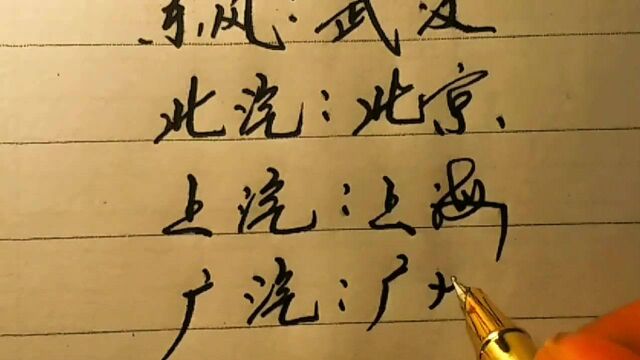 东风：武汉
北汽：北京、
上汽：上海
广汽：广